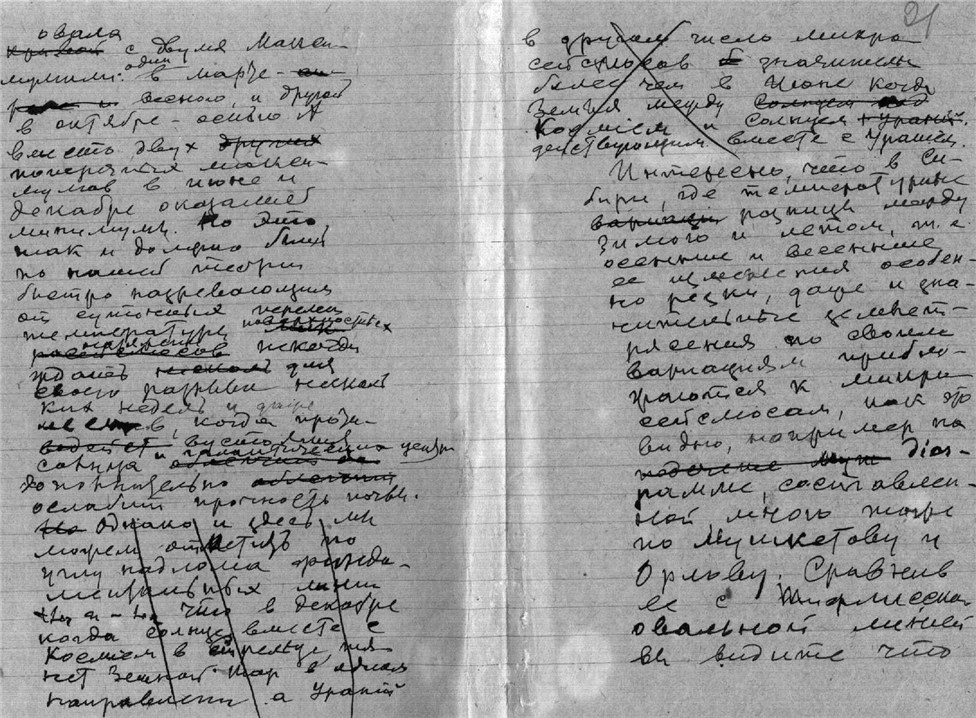 овала
с двумя макси-
мумами: один в марте-
весною, и другой
в октябре - осенью. А
вместо двух других
максимумов в июне и
декабре оказались
минимумы. Но это
так и должно быть
по нашей теории
быстро назревающих
от суточных перемен
температуры поверхностных
напряжений
ждать для
своего разрыва несколь
ких недель и даже
месяцев, когда
солнца и галактического центра
дополнительно
ослабит прочность почвы.
Но Однако и здесь мы
можем отметить по
углу надлома
что в декабре
когда солнце вместе с
Космием в стрельце тя-
нет Земной шар в одном
направлении а Ураний
21
в другом число микро
сейсмосов значительно
более чем в Июне когда
Земля между
Космием и Солнцем
действующим вместе с Уранием.
Интересно, что в Си-
бири, где температурные
вариации разницы между
Зимою и летом, т. е.
осенние и весенние
ее изменения особен-
но резки, даже и зна-
чительные землет-
рясения по своим
вариациям прибли-
жаются к микро
сейсмосам, как это
видно, например на
диаг-
рамме, составлен-
ной мною тоже
по Мушкетову и
Орлову. Сравнив
ее с
овальной линией
вы видите что